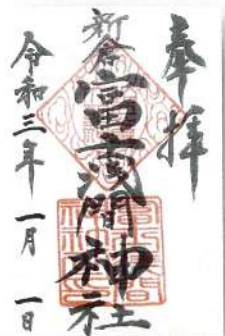 奉拝
新倉
富士浅間神社
令和三年 一月 一日